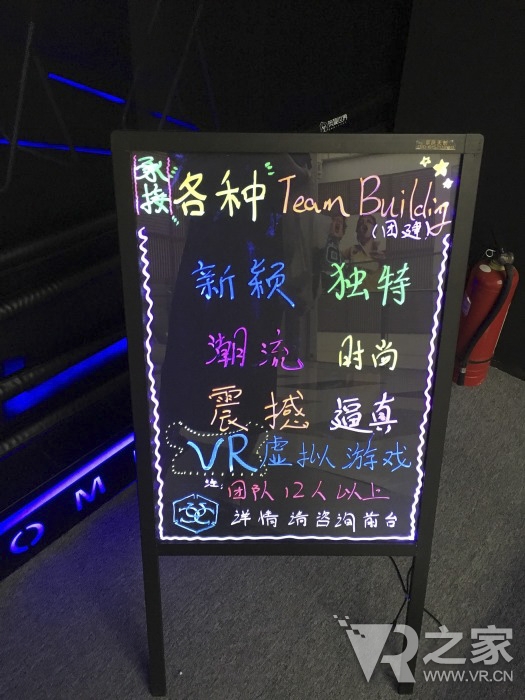 承接 各种 Team Building
(团建)
新颖 独特
潮流 时尚
震撼 逼真
VR 虚拟游戏
注: 团队12人以上
详情请咨询前台
OM
VR之家
WWW.VR.CN